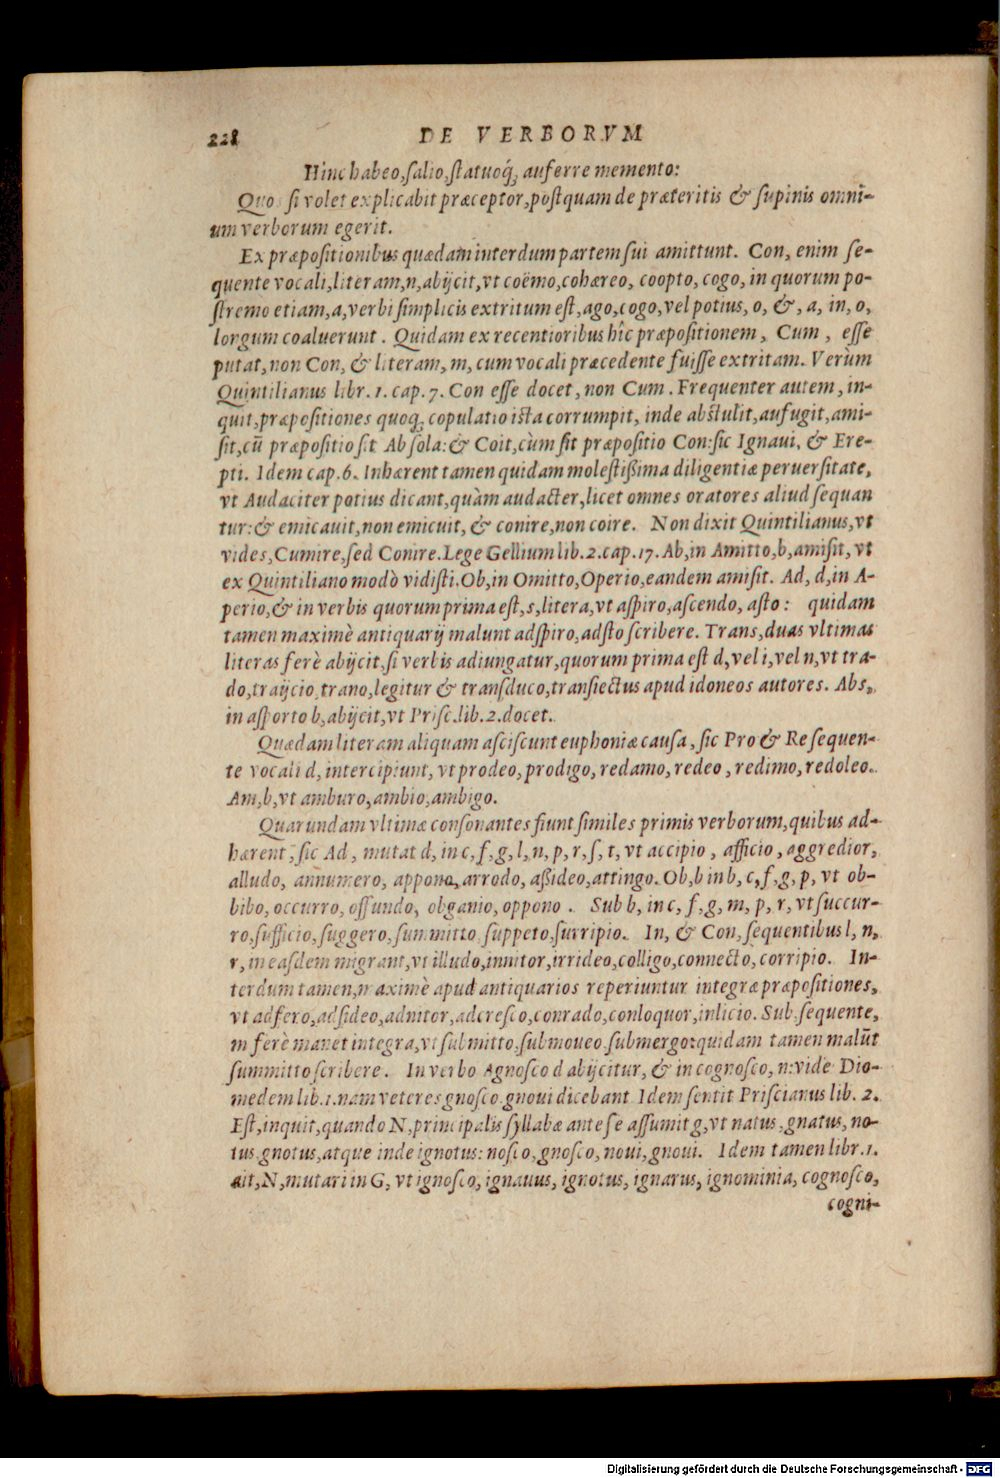 228 DE VERBORVM
Hinc habeo, salio, statuoq́;, auferre memento:
Quos si volet explicabit præceptor, postquam de præteritis & supinis omni-
um verborum egerit.
Ex præpositionibus quædam interdum partem sui amittunt. Con, enim se-
quente vocali, literam, n, abijcit, vt coëmo, cohæreo, coopto, cogo, in quorum po-
stremo etiam, a, verbi simplicis extritum est, ago, cogo, vel potius, o, &, a, in, o,
lorgum coaluerunt. Quidam ex recentioribus hîc præpositionem, Cum, esse
putat, non Con, & literam, m, cum vocali præcedente fuisse extritam. Verùm
Quintilianus libr. 1. cap. 7. Con esse docet, non Cum. Frequenter autem, in-
quit, præpositiones quoq; copulatio ista corrumpit, inde abstulit, aufugit, ami-
sit, cū præpositio sit Ab sola: & Coit, cùm sit præpositio Con: sic Ignaui, & Ere-
pti. Idem cap. 6. Inhærent tamen quidam molestißima diligentiæ peruersitate,
vt Audaciter potius dicant, quàm audacter, licet omnes oratores aliud sequan
tur: & emicauit, non emicuit, & conire, non coire. Non dixit Quintilianus, vt
vides, Cumire, sed Conire. Lege Gellium lib. 2. cap. 17. Ab, in Amitto, b, amisit, vt
ex Quintiliano modò vidisti. Ob, in Omitto, Operio, eandem amisit. Ad, d, in A-
perio, & in verbis quorum prima est, s, litera, vt aspiro, ascendo, asto: quidam
tamen maximè antiquarij malunt adspiro, adsto scribere. Trans, duas vltimas
literas ferè abijcit, si verbis adiungatur, quorum prima est d, vel i, vel n, vt tra-
do, traijcio, trano, legitur & transduco, transiectus apud idoneos autores. Abs,
in asporto b, abijcit, vt Prisc. lib. 2. docet.
Quædam literam aliquam asciscunt euphoniæ causa, sic Pro & Re sequen-
te vocali d, intercipiunt, vt prodeo, prodigo, redamo, redeo, redimo, redoleo.
Am, b, vt amburo, ambio, ambigo.
Quarundam vltimæ consonantes fiunt similes primis verborum, quibus ad-
hærent, sic Ad, mutat d, in c, f, g, l, n, p, r, s, t, vt accipio, afficio, aggredior,
alludo, annumero, appono, arrodo, aßideo, attingo. Ob, b in b, c, f, g, p, vt ob-
bibo, occurro, offundo, obganio, oppono. Sub b, in c, f, g, m, p, r, vt succur-
ro, sufficio, suggero, summitto, suppeto, surripio. In, & Con, sequentibus l, n,
r, in easdem migrant, vt illudo, innitor, irrideo, colligo, connecto, corripio. In-
terdum tamen, maximè apud antiquarios reperiuntur integræ præpositiones,
vt adfero, adsideo, adnitor, adcresco, conrado, conloquor, inlicio. Sub, sequente,
m ferè manet integra, vt submitto, submoueo, submergo: quidam tamen malūt
summitto scribere. In verbo Agnosco d abijcitur, & in cognosco, n: vide Dio-
medem lib. 1. nam veteres gnosco, gnoui dicebant. Idem sentit Priscianus lib. 2.
Est, inquit, quando N, principalis syllabæ ante se assumit g, vt natus, gnatus, no-
tus, gnotus, atque inde ignotus: nosco, gnosco, noui, gnoui. Idem tamen libr. 1.
ait, N, mutari in G, vt ignosco, ignauus, ignotus, ignarus, ignominia, cognosco,
cogni-
Digitalisierung gefördert durch die Deutsche Forschungsgemeinschaft - DFG